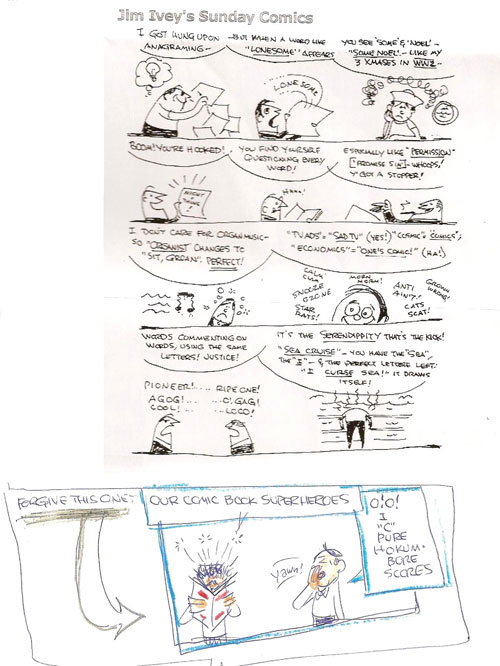 Jim Ivey's Sunday Comics
I GOT HUNG UPON
ANAGRAMING-
-BUT WHEN A WORD LIKE
"LONESOME" APPEARS
YOU SEE 'SOME' & 'NOEL' -
"SOME NOEL". - LIKE MY
3 XMASES IN WW2 -
LONESOME
BOOM! YOU'RE HOOKED!
YOU FIND YOURSELF
QUESTIONING EVERY
WORD!
ESPECIALLY LIKE "PERMISSION"
["PROMISE SIN" - WHOOPS!
Y'GOT A STOPPER!
NIGHT
THING!
Hmm!
I DON'T CARE FOR ORGAN MUSIC-
SO "ORGANIST CHANGES TO
"SIT, GROAN". PERFECT!
"TV ADS" = "SAD TV" (YES!) "COSMIC" = "COMICS";
"ECONOMICS" = "ONE'S COMIC!" (HA!)
SNOOZE
OZONE
STAR
RATS!
ANTI
AIN'T!
CATS
SCAT!
WORDS COMMENTING ON
WORDS, USING THE SAME
LETTERS! JUSTICE!
IT'S THE SERENDIPPITY THAT'S THE KICK!
"SEA CRUISE" - YOU HAVE THE "SEA",
THE "I" - & THE PERFECT LETTERS LEFT.
"I CURSE SEA!" IT DRAWS
ITSELF!
PIONEER!..... RIPE ONE!
AGOG!.... O! GAG!
COOL!... LOCO!
FORGIVE THIS ONE:
OUR COMIC BOOK SUPERHEROES
yawn!
O!O!
I
"C"
PURE
HOKUM.
BORE
SCORES